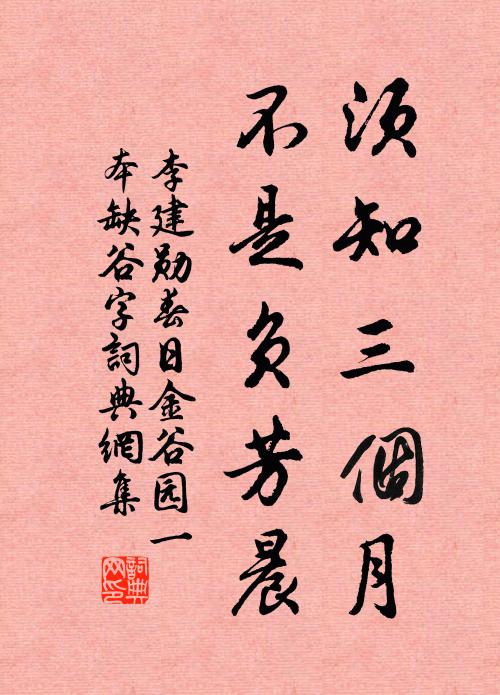 须知三個月
不是负芳晨
李建勋春日金谷园一
本缺谷字詞典網集
詞典
网印